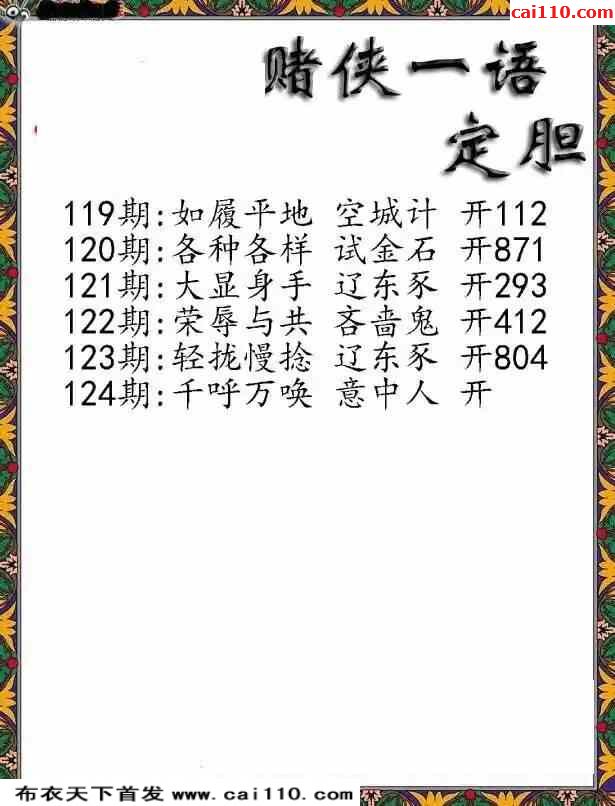 cai110.com
赌侠一语
定胆
119期:如履平地 空城计 开112
120期:各种各样 试金石 开871
121期:大显身手 辽东豕 开293
122期:荣辱与共 吝啬鬼 开412
123期:轻拢慢捻 辽东豕 开804
124期:千呼万唤 意中人 开
布衣天下首发 www.cai110.com